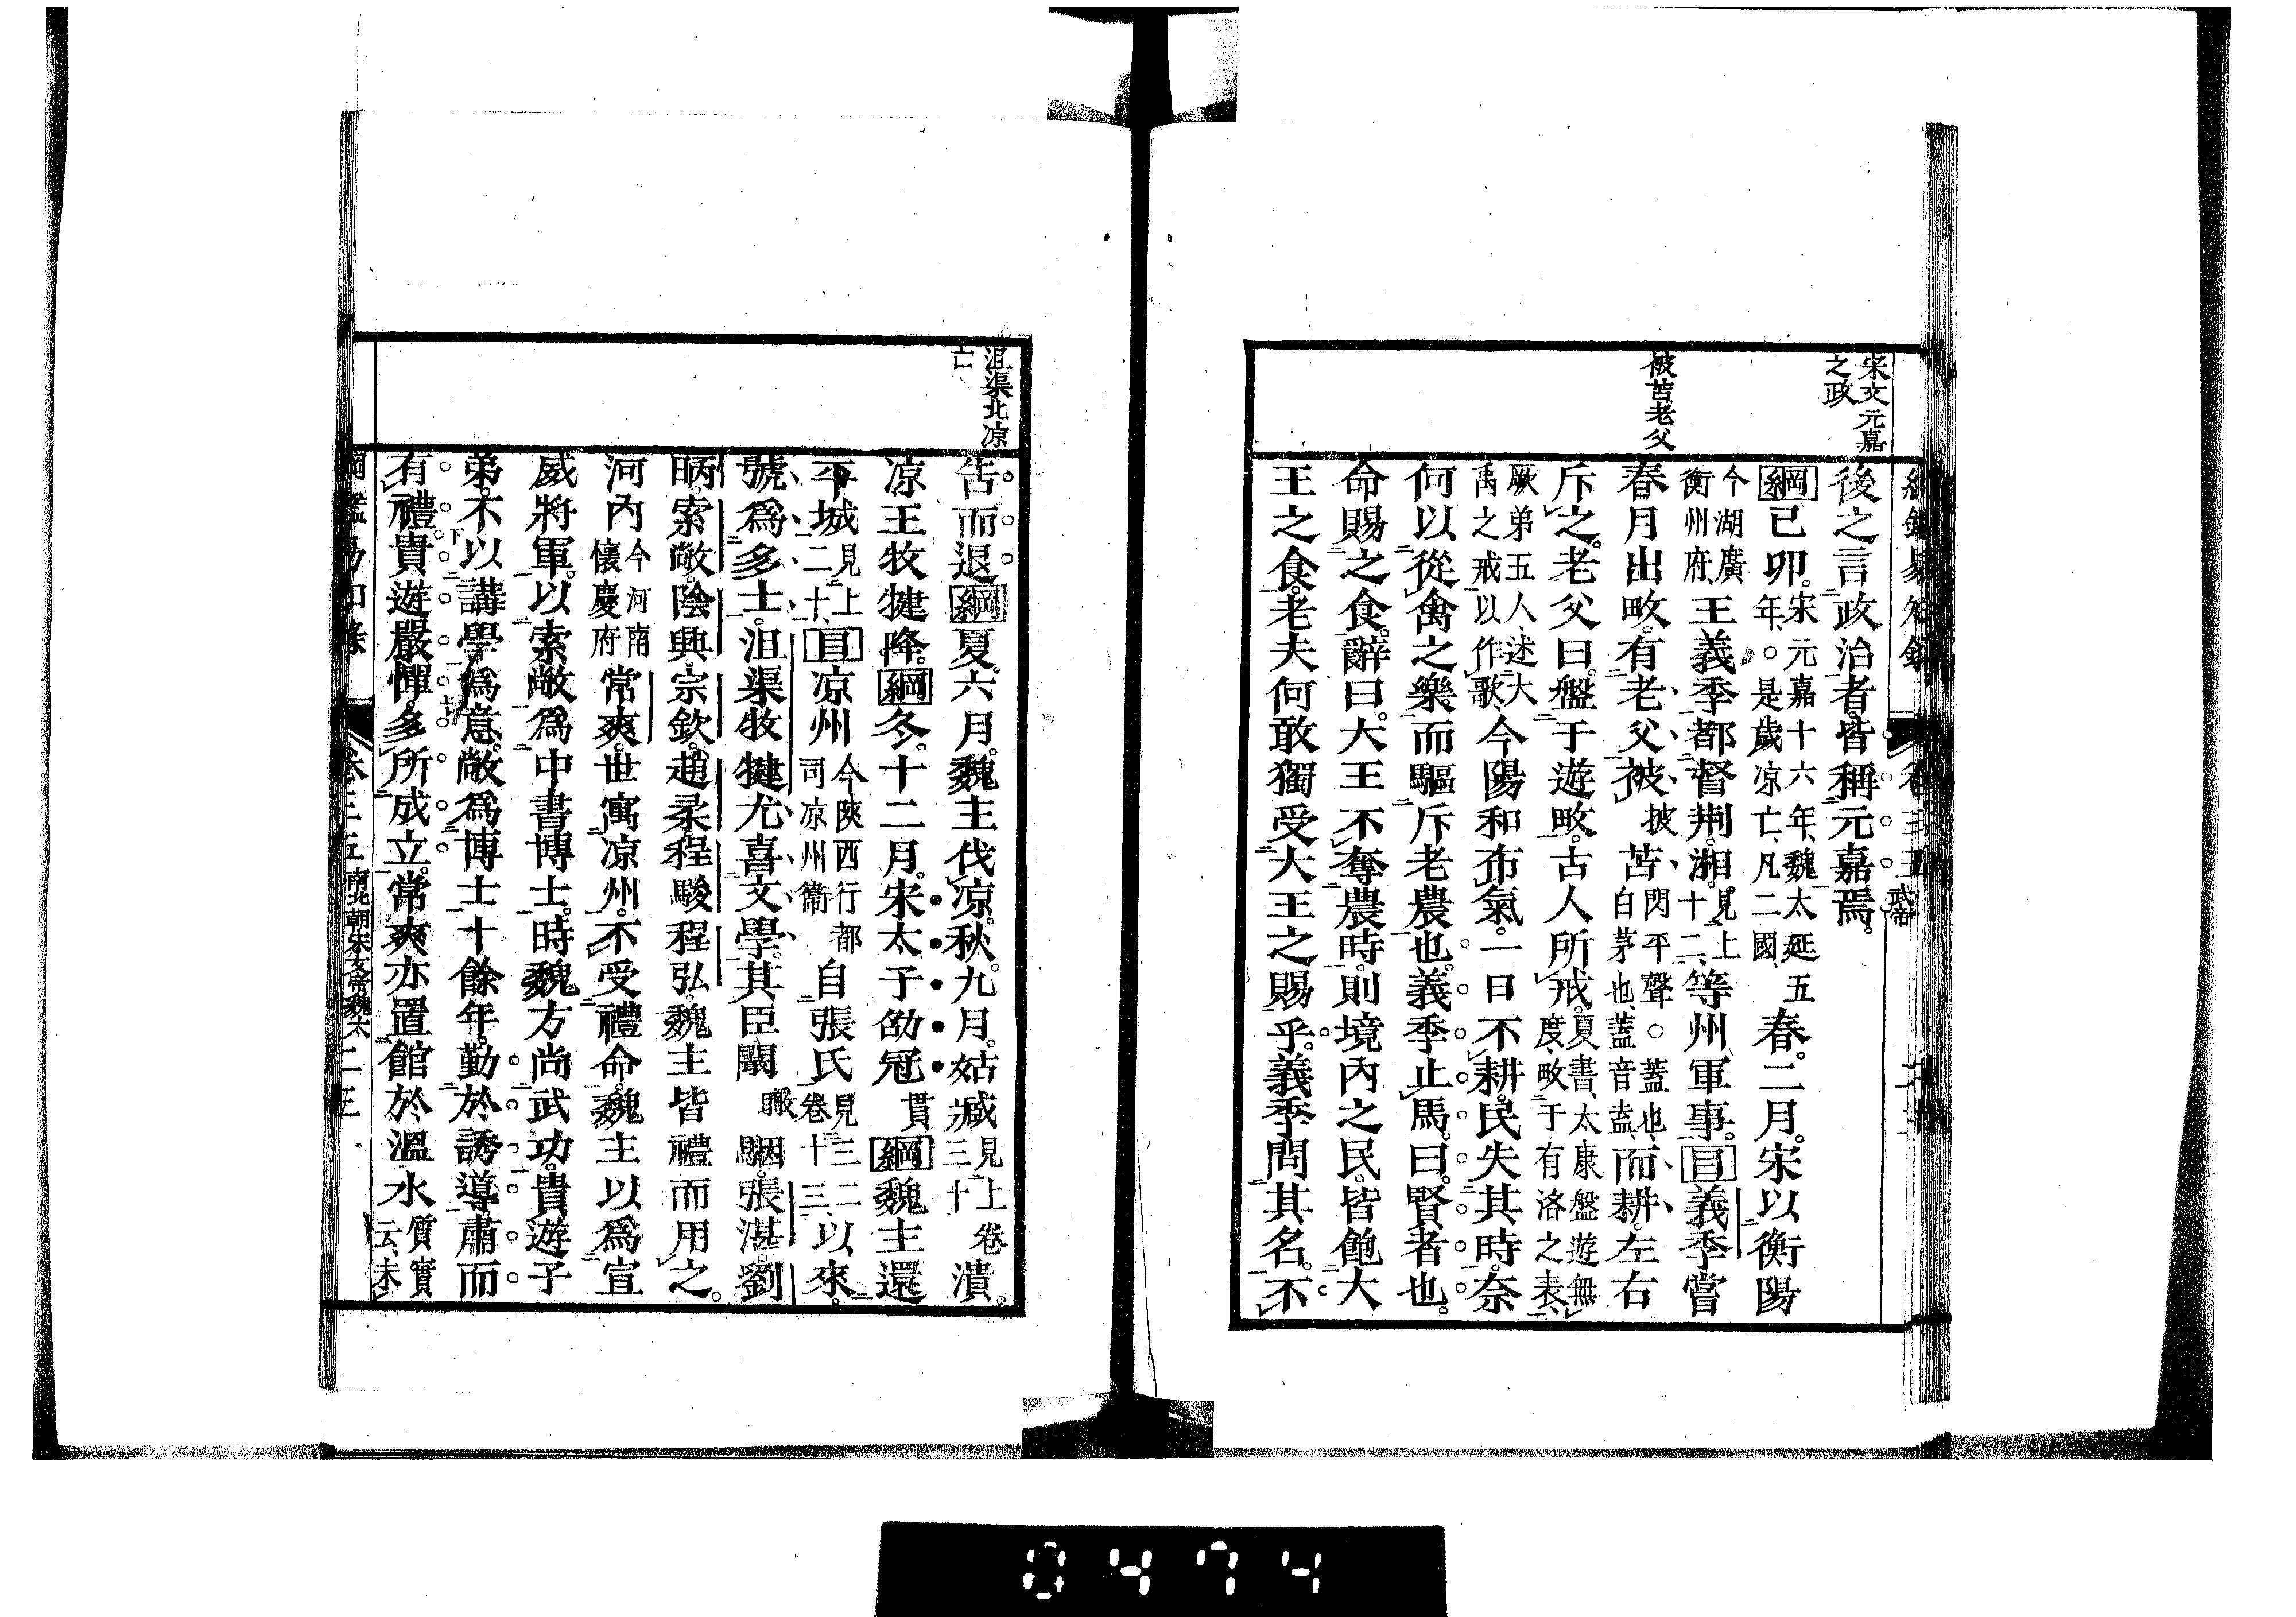 宋文元嘉
之政
後之言政治者。皆稱元嘉焉。
綱己卯。宋元嘉十六年、魏太延五年、○是歲凉亡、凡二國、春。二月。宋以衡陽
今湖廣衡州府、王義季都督荆湘。見上十二、等州軍事。目義季嘗
春月出畋。有老父被披苫閃平聲○蓋也、白茅也、蓋音盍、而耕。左右
被苫老父
斥之。老父曰。盤于遊畋。古人所戒。夏書、太康盤遊無度、畋于有洛之表、
厥弟五人、述大禹之戒以作歌、今陽和布氣。一日不耕。民失其時。奈
何以從禽之樂。而驅斥老農也。義季止馬。曰。賢者也。
命賜之食。辭曰。大王不奪農時。則境內之民。皆飽大
王之食。老夫何敢獨受大王之賜乎。義季問其名。不
沮渠北凉
亡
告而退。綱夏。六月。魏主伐凉。秋。九月。姑臧見上卷三十潰。
凉王牧犍降。綱冬。十二月。宋太子劭冠貫綱魏主還
平城見上二十、目凉州今陝西行都司凉州衞自張氏見三二卷十三、以來。
號爲多士。沮渠牧犍尤喜文學。其臣闞駰。張湛。劉
昞。索敞。陰興。宗欽。趙柔。程駿。程弘。魏主皆禮而用之。
河內今河南懷慶府常爽。世寓凉州。不受禮命。魏主以爲宣
威將軍。以索敞爲中書博士。時魏方尚武功。貴遊子
弟。不以講學爲意。敞爲博士十餘年。勤於誘導。肅而
有禮。貴遊嚴憚。多所成立。常爽亦置館於溫水質實云、未
卷三五 南北朝宋文帝魏太 二三